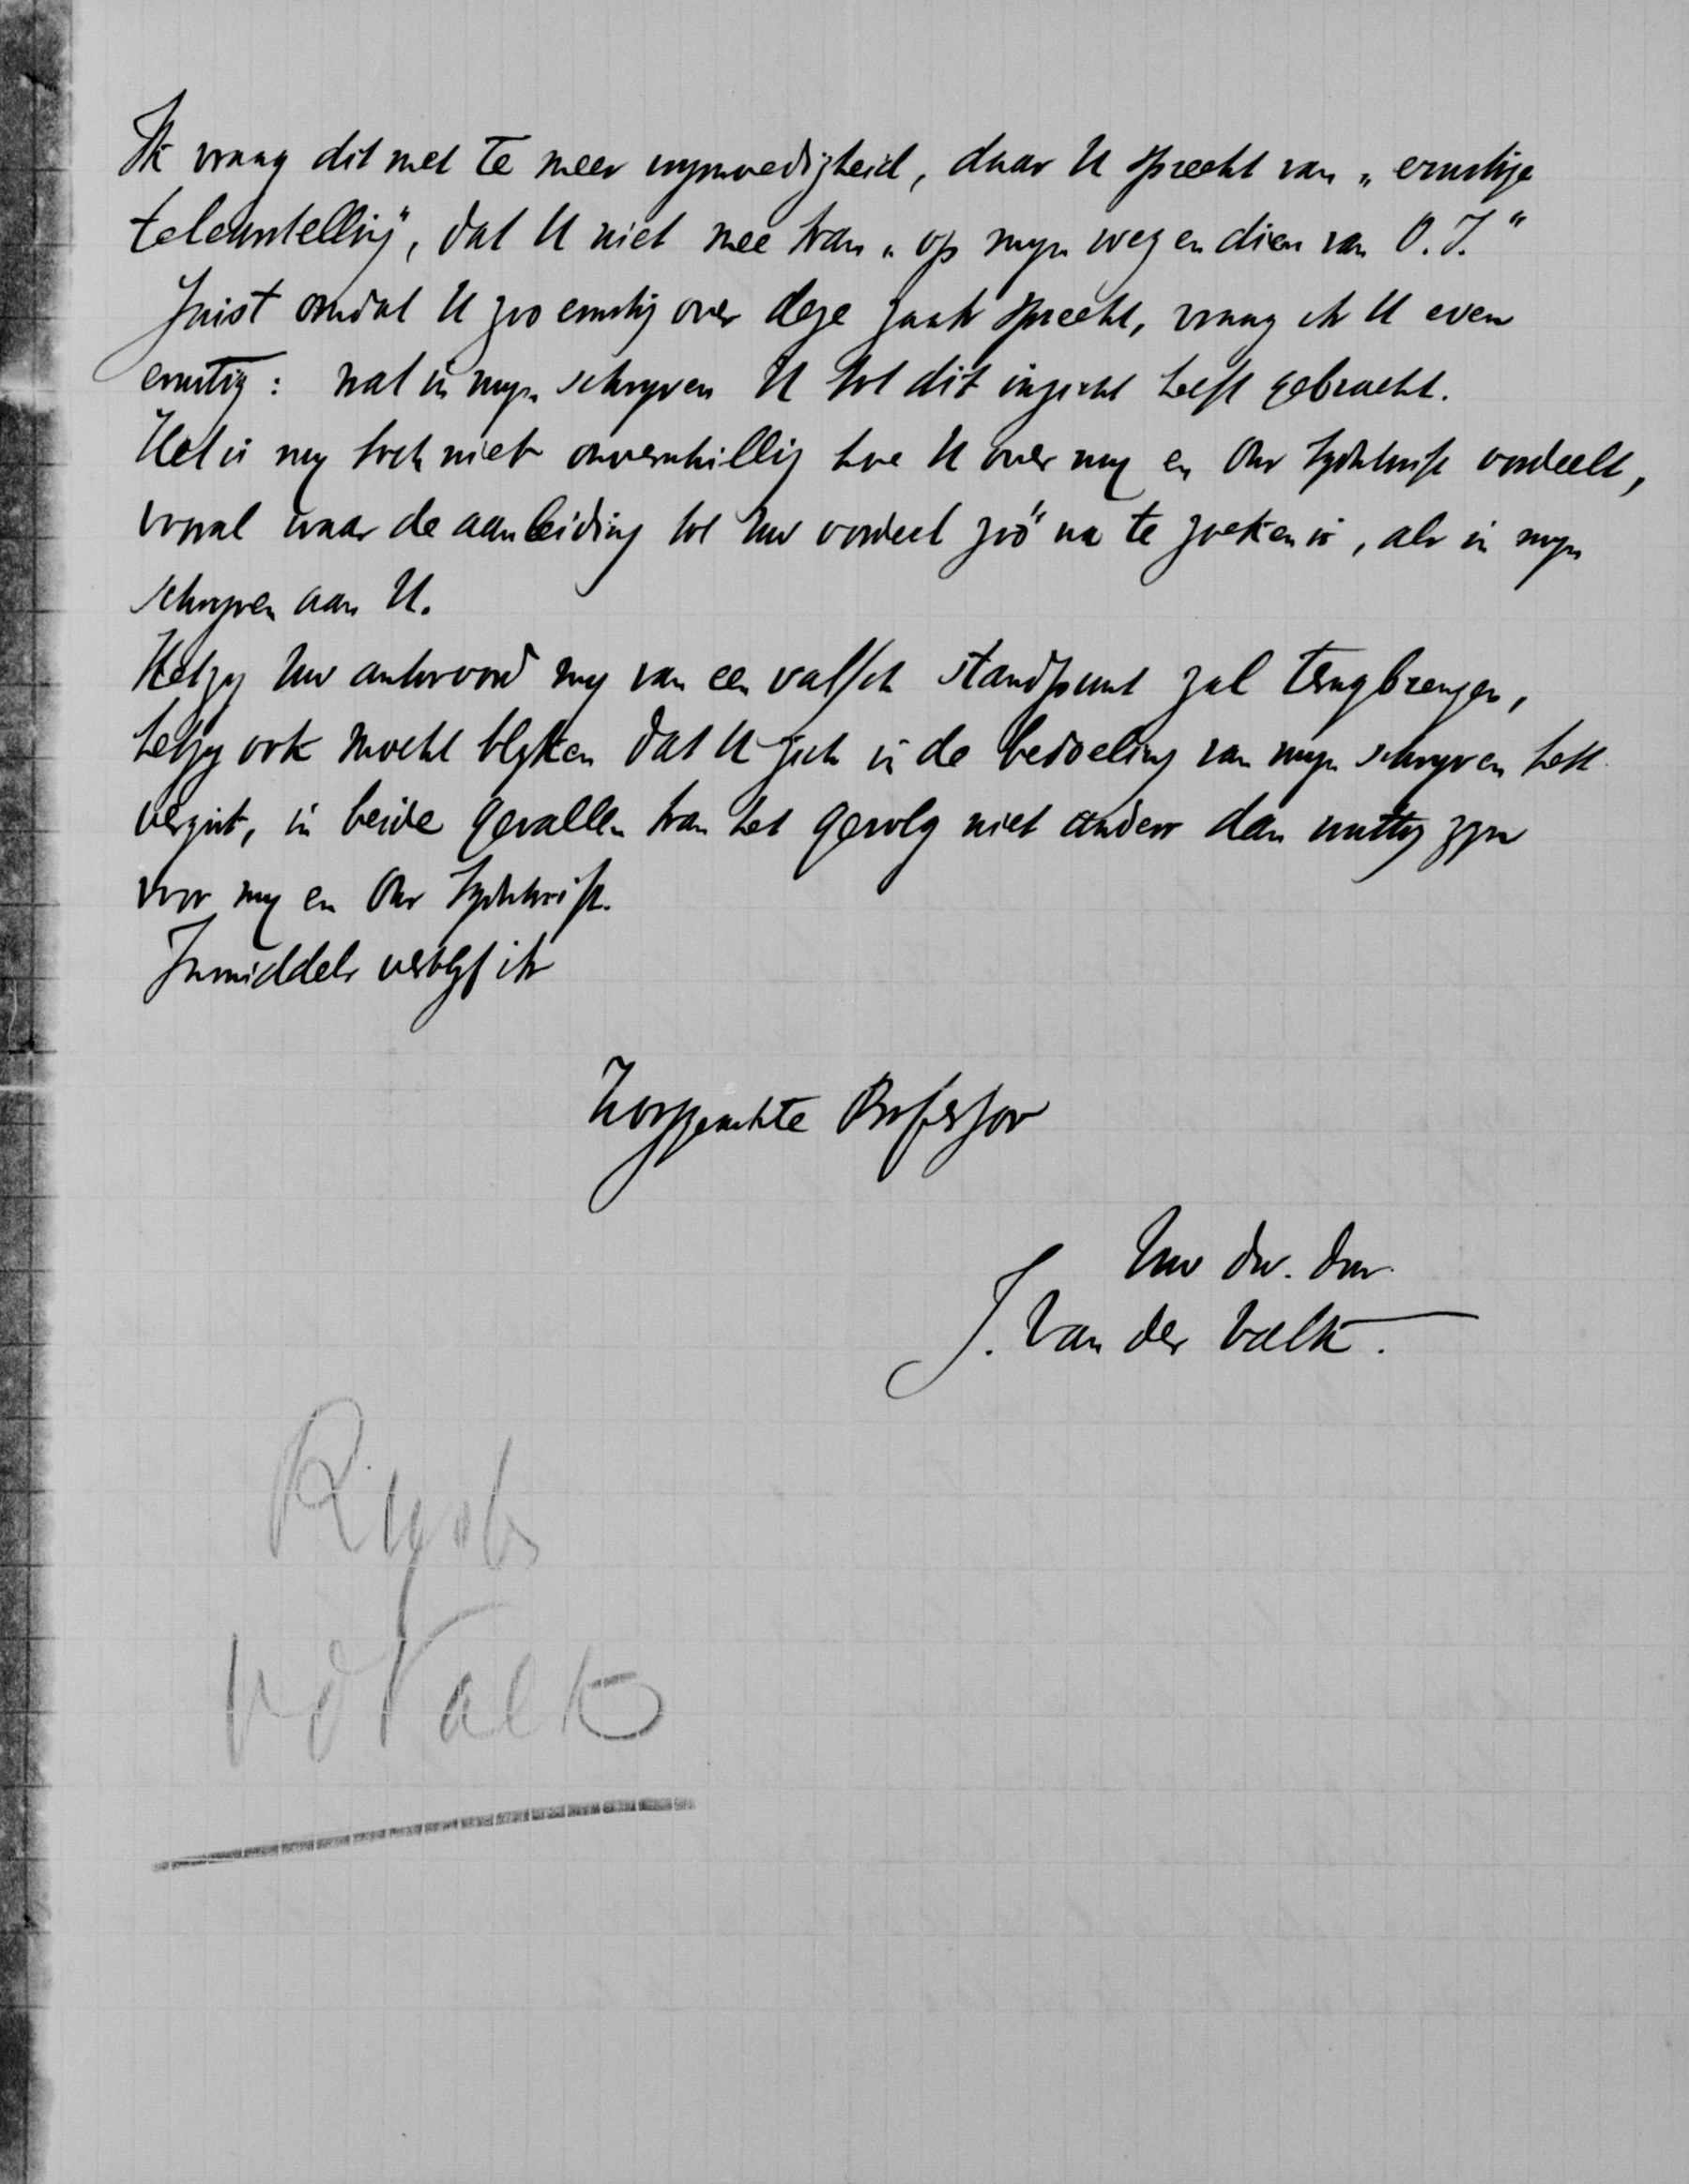 Ik vraag dit met te meer vrymoedigheid, daar U spreekt van „ernstige
teleurstelling", dat U niet mee kan „op myn weg en dien van O.T."
Juist omdat U zoo ernstig over deze zaak spreekt, vraag ik U even
ernstig: wat in myn schryven U tot dit inzicht heeft gebracht.
Het is my toch niet onverschillig hoe U over my en Ons Tydschrift oordeelt,
vooral waar de aanleiding tot Uw oordeel zóó na te zoeken is, als in myn
schryven aan U.
Hetzy Uw antwoord my van een valsch standpunt zal terugbrengen,
hetzy ook mocht blyken dat U zich in de bedoeling van myn schryven heeft
vergist, in beide gevallen kan het gevolg niet anders dan nuttig zyn
voor my en Ons Tydschrift.
Inmiddels verblyf ik
Hooggeachte Professor
Uw dw. dnr.
J. van der Valk.
vd Valk